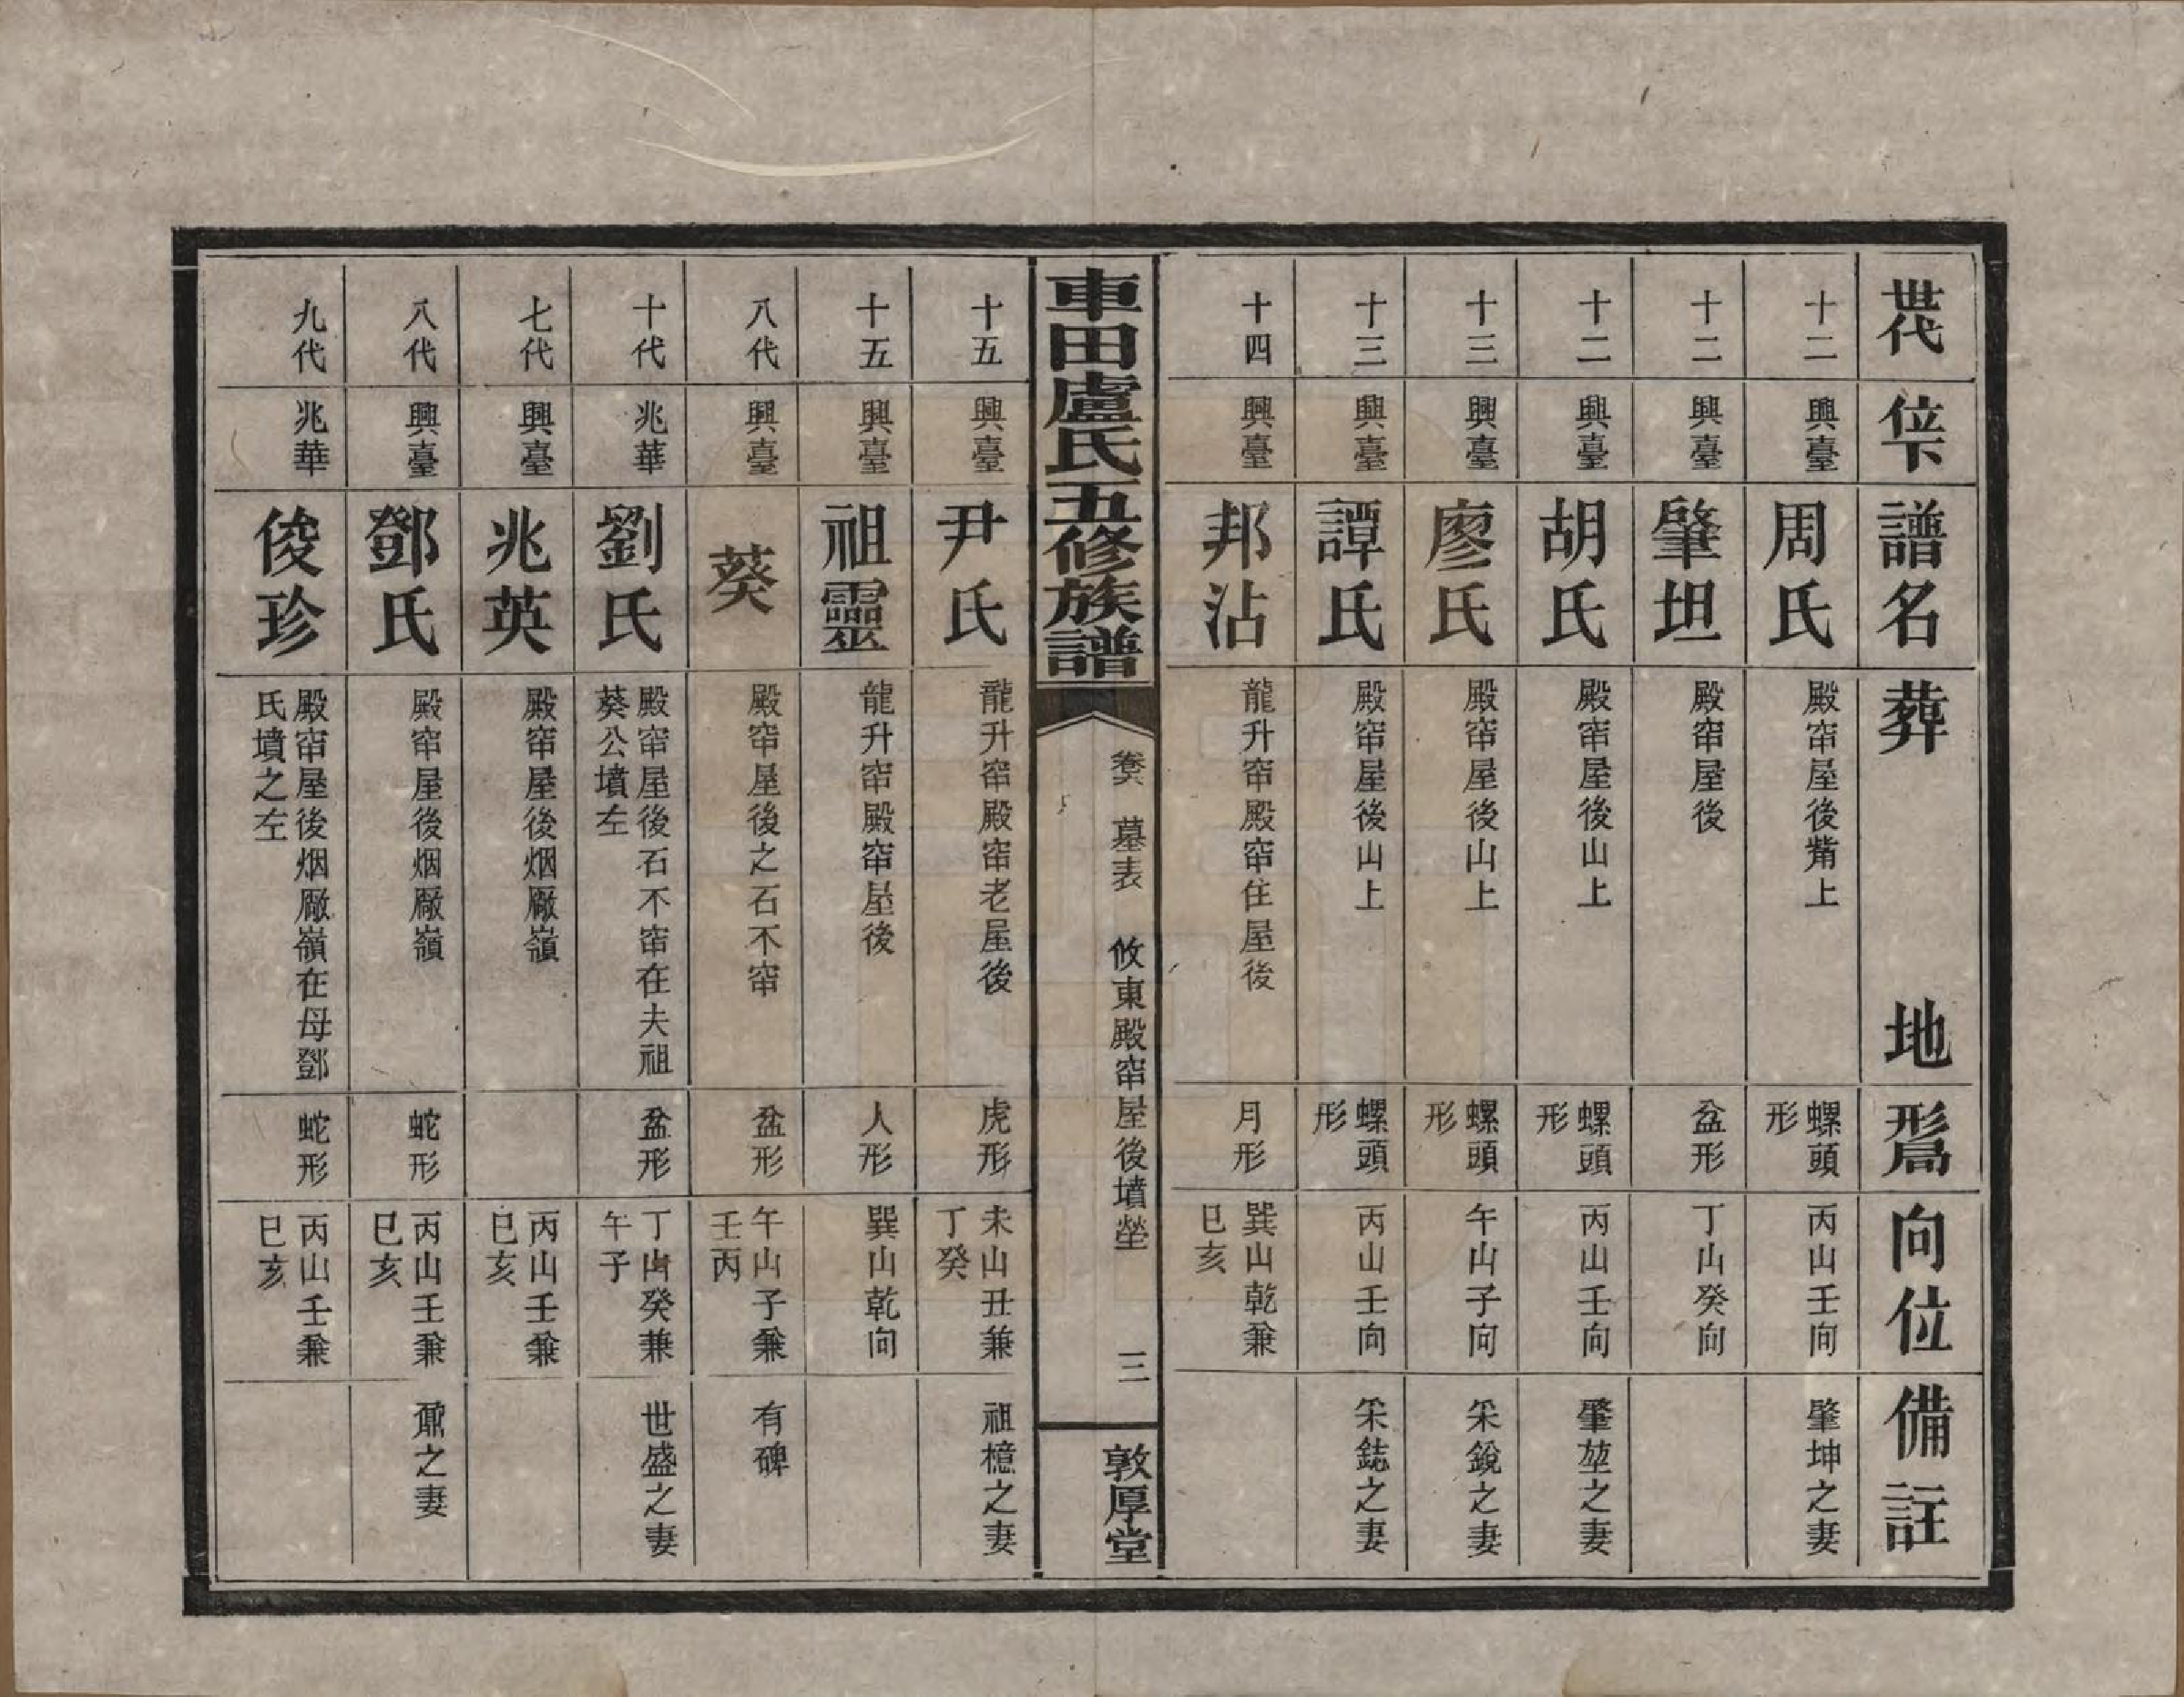 世代 倅下 譜名 葬地 形舊 向位 備註
十二 興臺 周氏 殿窂屋後觜上 螺頭形 丙山壬向 肇坤之妻
十二 興臺 肇坦 殿窂屋後 盆形 丁山癸向
十二 興臺 胡氏 殿窂屋後山上 螺頭形 丙山壬向 肇堃之妻
十三 興臺 廖氏 殿窂屋後山上 螺頭形 午山子向 采銳之妻
十三 興臺 譚氏 殿窂屋後山上 螺頭形 丙山壬向 采鋕之妻
十四 興臺 邦沾 龍升窂殿窂住屋後 月形 巽山乾兼巳亥
車田盧氏五修族譜 卷六 墓表 攸東殿窂屋後墳塋 三 敦厚堂
十五 興臺 尹氏 龍升窂殿窂老屋後 虎形 未山丑兼丁癸 祖檍之妻
十五 興臺 祖靈 龍升窂殿窂屋後 人形 巽山乾向
八代 興臺 葵 殿窂屋後之石不窂 盆形 午山子兼壬丙 有碑
十代 兆華 劉氏 殿窂屋後石不窂在夫祖葵公墳左 盆形 丁山癸兼午子 世盛之妻
七代 興臺 兆英 殿窂屋後烟廠嶺 丙山壬兼巳亥
八代 興臺 鄧氏 殿窂屋後烟廠嶺 蛇形 丙山壬兼巳亥 鼐之妻
九代 兆華 俊珍 殿窂屋後烟廠嶺在母鄧氏墳之左 蛇形 丙山壬兼巳亥